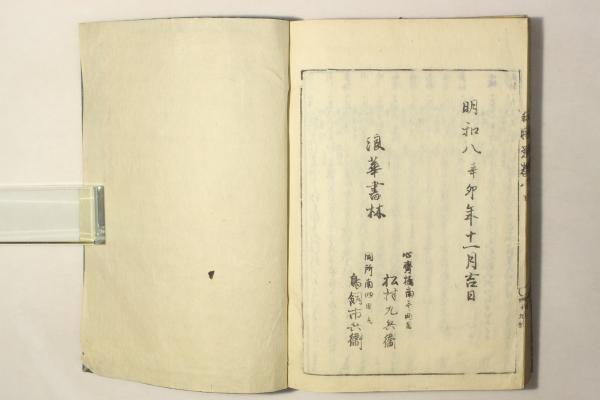 明和八辛卯年十一月吉日
浪華書林
心齋橋南
松村九兵衛
同所南四丁目
鳥飼市兵衛